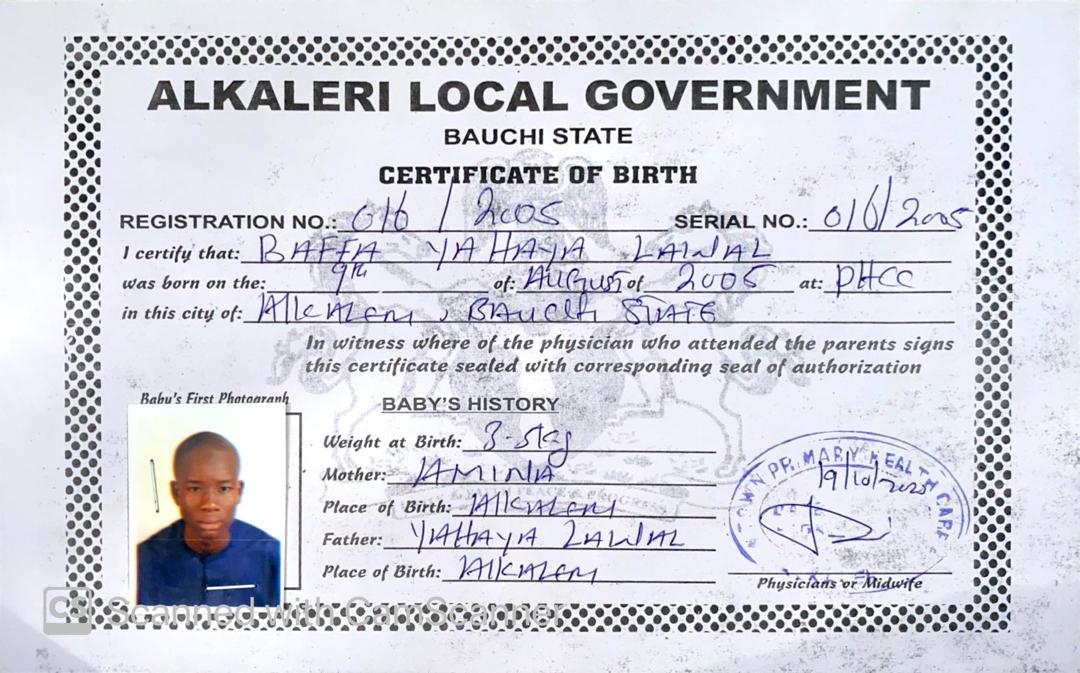 ALKALERI LOCAL GOVERNMENT
BAUCHI STATE
CERTIFICATE OF BIRTH
REGISTRATION NO.: 016 / 2005 SERIAL NO.: 016/2005
I certify that: BAFFA YAHAYA LAWAL
was born on the: 9th of: AUGUST of 2005 at: PHCC
in this city of: Alkaleri, BAUCHI STATE
In witness where of the physician who attended the parents signs
this certificate sealed with corresponding seal of authorization
Baby's First Photograph
BABY'S HISTORY
Weight at Birth: 3-5kg
Mother: AMINA
Place of Birth: Alkaleri
Father: YAHAYA LAWAL
Place of Birth: Alkaleri
TOWN PRIMARY HEALTH CARE
19/10/2025
Physicians or Midwife
CS Scanned with CamScanner